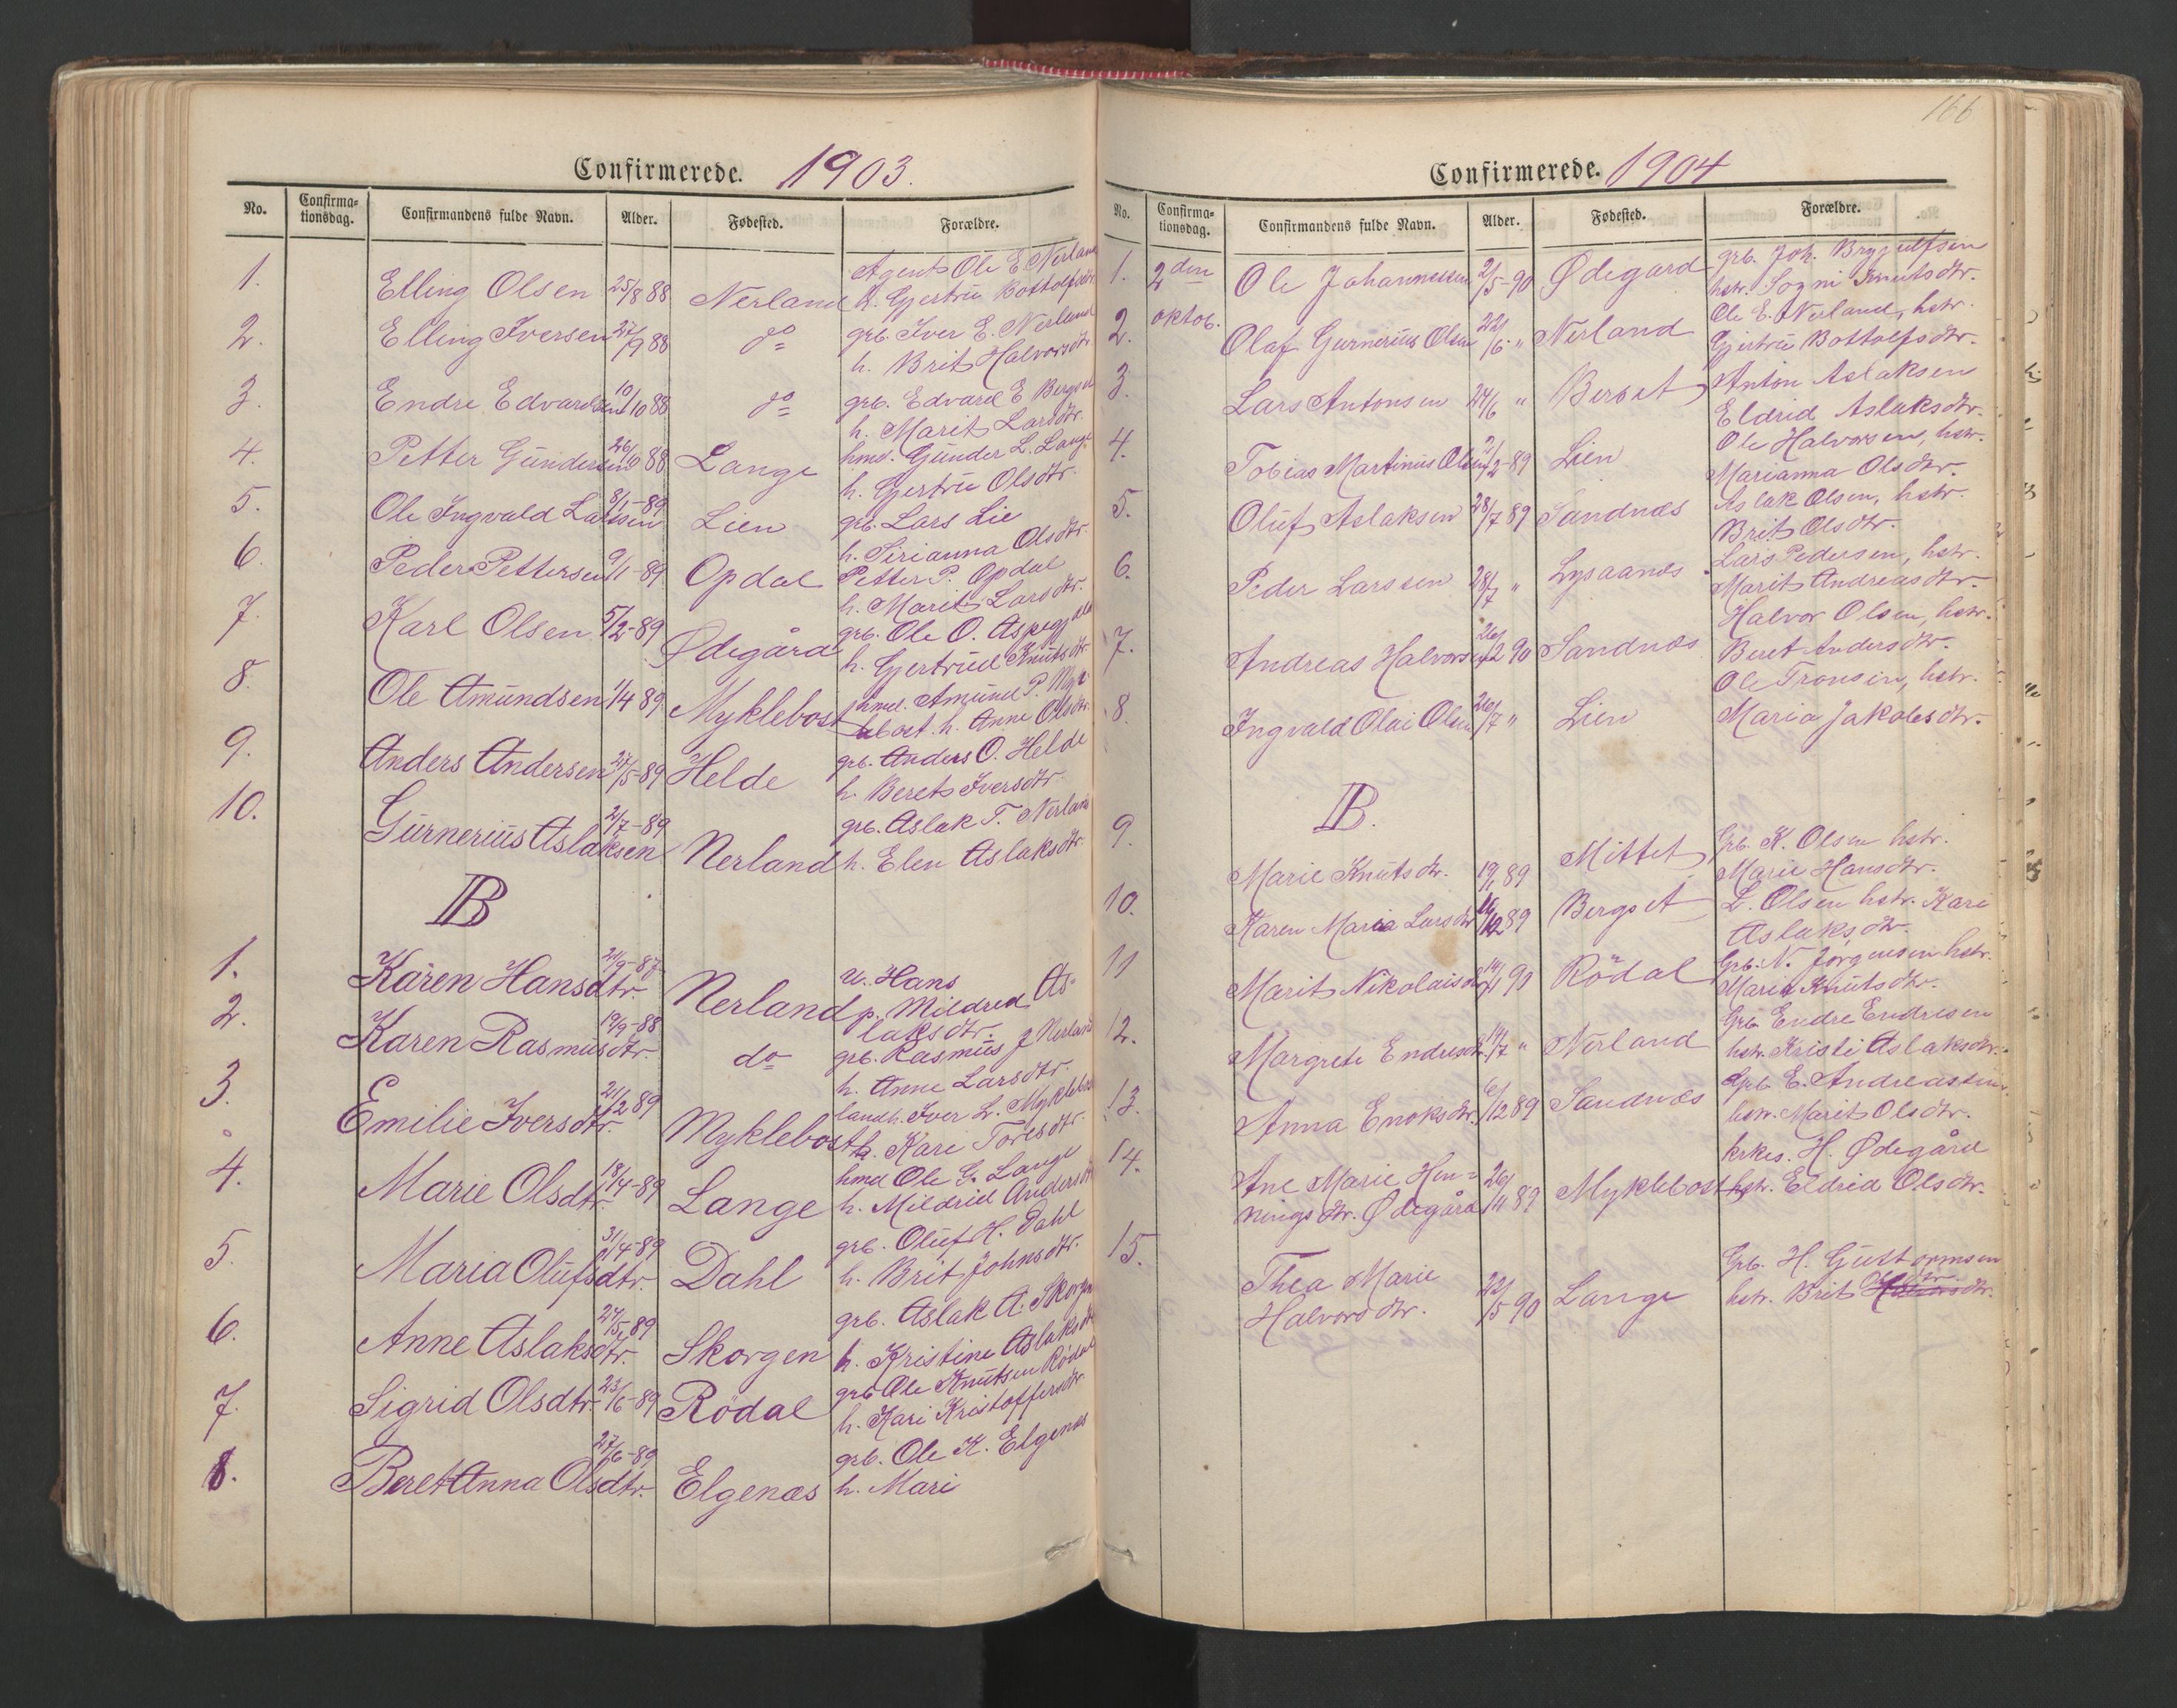 Confirmerede. 1903.
No. Confirma-
tionsdag. Confirmandens fulde Navn. Alder. Fødested. Forældre.
1. Elling Olsen 25/8 88 Nerland Agent Ole E Nerland
h. Gjertru Bottolfsdtr.
2. Elling Iversen 27/9 88 do grb. Iver E. Nerland
h. Brit Halvorsdtr.
3. Endre Edvardsen 10/10 88 do grb. Edvard E Bergset
h. Marit Larsdtr.
4. Petter Gundersen 88 Lange hmd. Gunder L. Lange
h. Gjertru Olsdtr.
5. Ole Ingvald Larssen 8/1-89 Lien grb. Lars Lie
h. Sirianna Olsdtr.
6. Peder Pettersen 9/1-89 Opdal Petter P. Opdal
h. Marit Larsdtr.
7. Karl Olsen 5/2-89 Ødegård grb. Ole O.
h. Gjertrud Knutsdtr.
8. Ole Amundsen 1/4 89 Myklebost hmd. Amund P. Myk
lebost. h. Anne Olsdtr.
9. Anders Andersen 27/5-89 Helde grb. Anders O. Helde
h. Beret Iversdtr.
10. Gurnerius Aslaksen 2/7-89 Nerland grb. Aslak T. Nerland
h. Elen Aslaksdtr.
B
1. Karen Hansdtr. 21/9-87 Nerland u. Hans
p. Mildred As-
laksdtr.
2. Karen Rasmusdtr. 19/9-88 do grb. Rasmus J Nerland
h. Anne Larsdtr.
3. Emilie Iversdtr. 21/2 89 Myklebost landh. Iver L. Myklebost
h. Kari Toresdtr.
4. Marie Olsdtr. 18/4-89 Lange hmd Ole G. Lange
h. Mildrid Andersdtr
5. Maria Olufsdtr. 31/4-89 Dahl grb. Oluf H. Dahl
h. Brit Johnsdtr.
6. Anne Aslaksdtr. 27/5 89 Skorgen grb. Aslak A. Skorgen
h. Kristine Aslaksdtr
7. Sigrid Olsdtr. 23/6-89 Rödal grb Ole Knutsen Rödal
h. Kari Kristoffersdtr.
8. Beret Anna Olsdtr. 27/6-89 Elgenæs grb. Ole K. Elgenæs
h. Mari
166
Confirmerede. 1904
No. Confirma-
tionsdag. Confirmandens fulde Navn. Alder. Fødested. Forældre.
1. 2den Ole Johannessen 2/5-90 Ødegard grb. Joh. Brynjulfsen
hstr. Sogni Knutsdtr.
2. oktob. Olaf Gurnerius Olsen 22/6 " Nerland Ole E. Nerland, hstr.
Gjertru Bottolfsdtr.
3. Lars Antonsen 24/6 " Berset Anton Aslaksen
Eldrid Aslaksdtr.
4. Tobias Martinius Olsen 89 Lien Ole Halvorsen, hstr.
Marianna Olsdtr.
5. Oluf Aslaksen 28/7 89 Sandnæs Aslak Olsen, hstr.
Brit Olsdtr.
6. Peder Larssen 28/7 " Lysaanæs Lars Pedersen, hstr.
Marit Andreasdtr.
7. Andreas Halvorsen 26/2 90 Sandnæs Halvor Olsen, hstr.
Beret Andersdtr.
8. Ingvald Olai Olsen 20/7 " Lien Ole Tronsen, hstr.
Maria Jakobsdtr.
B.
9. Marie Knutsdtr. 89 Mittet Grb. K. Olsen hstr.
Marie Hansdtr.
10. Karen Maria Larsdtr 89 Bergset L. Olsen hstr. Kari
Aslaksdtr.
11 Marit Nikolaisdtr 90 Rödal Grb. N. Jörgensen hstr.
Marit Knutsdtr.
12. Margrete Endresdtr. 14/7 " Nerland Grb Endre Endresen
hstr. Kristi Aslaksdtr.
13. Anna Enoksdtr. 6/12 89 Sandnæs Grb E. Andreassen
hstr. Marit Olsdtr.
14. Ane Marie Hen-
ningsdtr. Ødegård 26/11 89 Myklebost krkes. H. Ødegård
hstr. Eldrid Olsdtr.
15. Thea Marie
Halvorsdtr. 22/5 90 Lange Grb. H. Guttormsen
hstr. Brit Halvorsdtr.